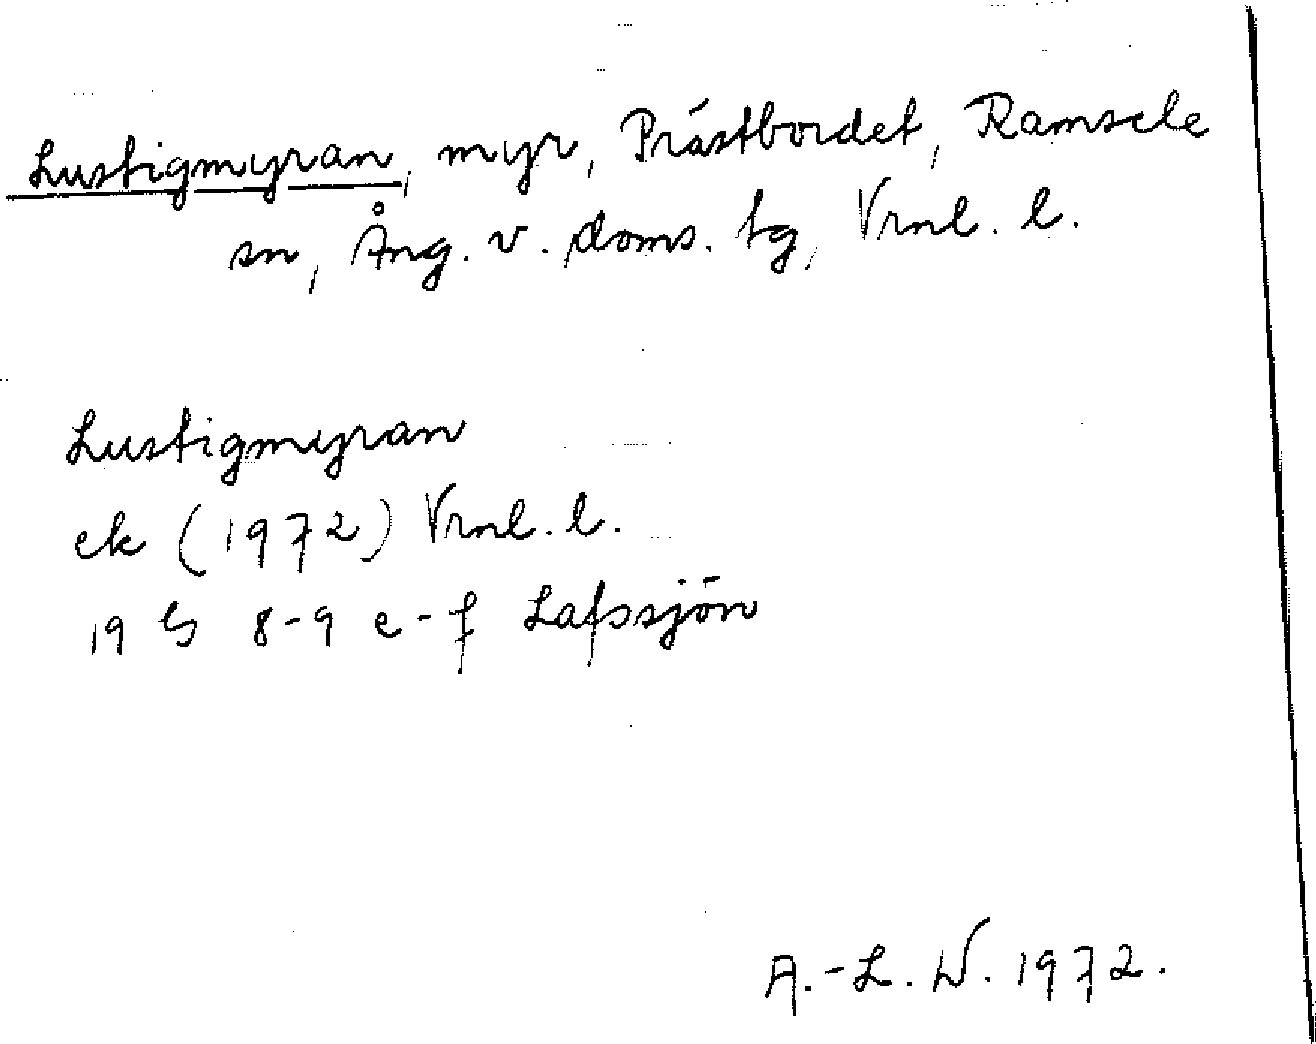 Lustigmyran, myr, Prästbordet, Ramsele
sn, Ång. v. doms. tg, Vrnl. l.
Lustigmyran
ek (1972) Vrnl. l.
19 G 8-9 e-f Lafssjön
A.-L. W. 1972.